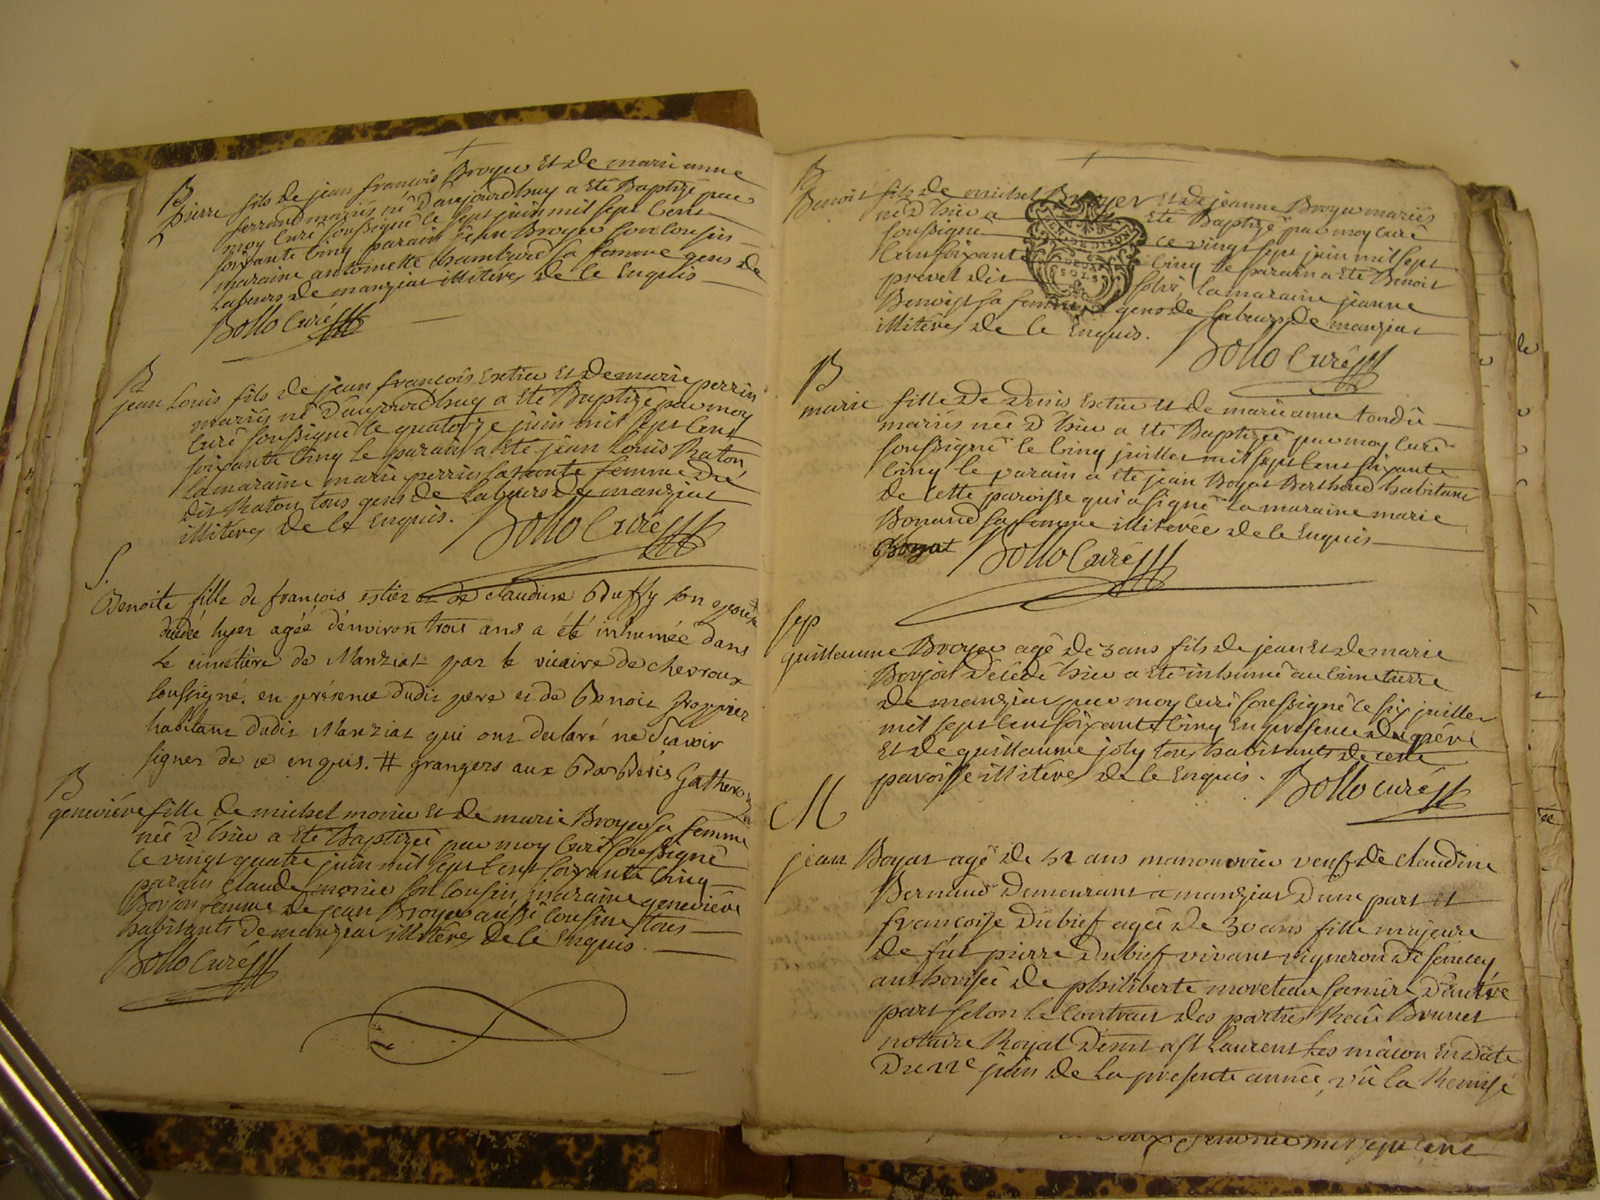 B
pierre fils de jean francois Broyer Et de marie anne
ferrand mariés né d'aujourdhuy a Eté Baptizé par
moy Curé soussigné le sept juin mil sept Cent
soixante Cinq parain jean Broyer son Cousin
maraine antoinette chambard sa femme gens de
Labeurs de manziat illiteres de Ce Enquis
Bollo Curé
B
jean Louis fils de jean francois Extier Et de marie perrin
mariés né d'aujourdhuy a Eté Baptizé par moy
Curé soussigné le quatorze juin mil sept Cent
soixante Cinq Le parain a Eté jean Louis Raton
La maraine marie perrin sa tante femme du
dit Raton tous gens de Labeurs de manziat
illiteres de Ce Enquis. Bollo Curé
S.
Benoite fille de françois estier et de claudine Buffy son epouse
dudée hyer agée d'environ trois ans a été inhumée dans
le cimetière de Manziat par le vicaire de chevroux
soussigné. en présence dudit pere et de Benoit
habitant dudit Manziat qui ont déclaré ne sçavoir
signer de ce enquis. # grangers aux
B
geneviéve fille de michel monier Et de marie Broyer sa femme
née d'hier a Eté Baptizée par moy Curé soussigné
Ce vingt quatre juin mil sept Cent soixante Cinq
parain Claude monier son Cousin, maraine geneviéve
Boyat femme de jean Broyer aussi Cousine tous
habitants de manziat illiteres de Ce Enquis.
Bollo Curé
B
Benoit fils de michel Broyer Et de jeanne Broyer mariés
né d'hier a Eté Baptizé par moy Curé
soussigné Ce vingt sept juin mil sept
Cent soixante Cinq le parain a Eté Benoit
prevet dit la maraine jeanne
Benoist sa femme gens de Labeurs de manziat
illiteres de Ce Enquis.
Bollo Curé
B
marie fille de Denis Extier Et de marie anne tondu
mariés née d'hier a Eté Baptizée par moy Curé
soussigné le Cinq juillet mil sept Cent soixante
Cinq le parain a Eté jean Boyat Berthoud habitant
de Cette paroisse qui a signé La maraine marie
Bonand sa femme illiterée de Ce Enquis
Boyat Bollo Curé
sep
guillaume Broyer agé de 3 ans fils de jean Et de marie
Boyat décédé hier a Eté inhumé au Cimetierre
de manziat par moy Curé soussigné le six juillet
mil sept Cent soixante Cinq En presence du père
Et de guillaume joly tous habitants de cette
paroisse illiteres de Ce Enquis. Bollo curé
M
jean Boyat agé de 52 ans manouvrier veuf de claudine
Bernaud Demeurant a manziat d'une part Et
francoise Dubief agée de 30 ans fille majeure
de fut pierre Dubief vivant vigneron de senecey
authorisée de philiberte moreteau sa mere d'autre
part selon Le Contrat des parties Receu Brunet
notaire Royal Demt a st Laurent Les mâcon En Date
Du 22e juin de La presente année, vü la Remise